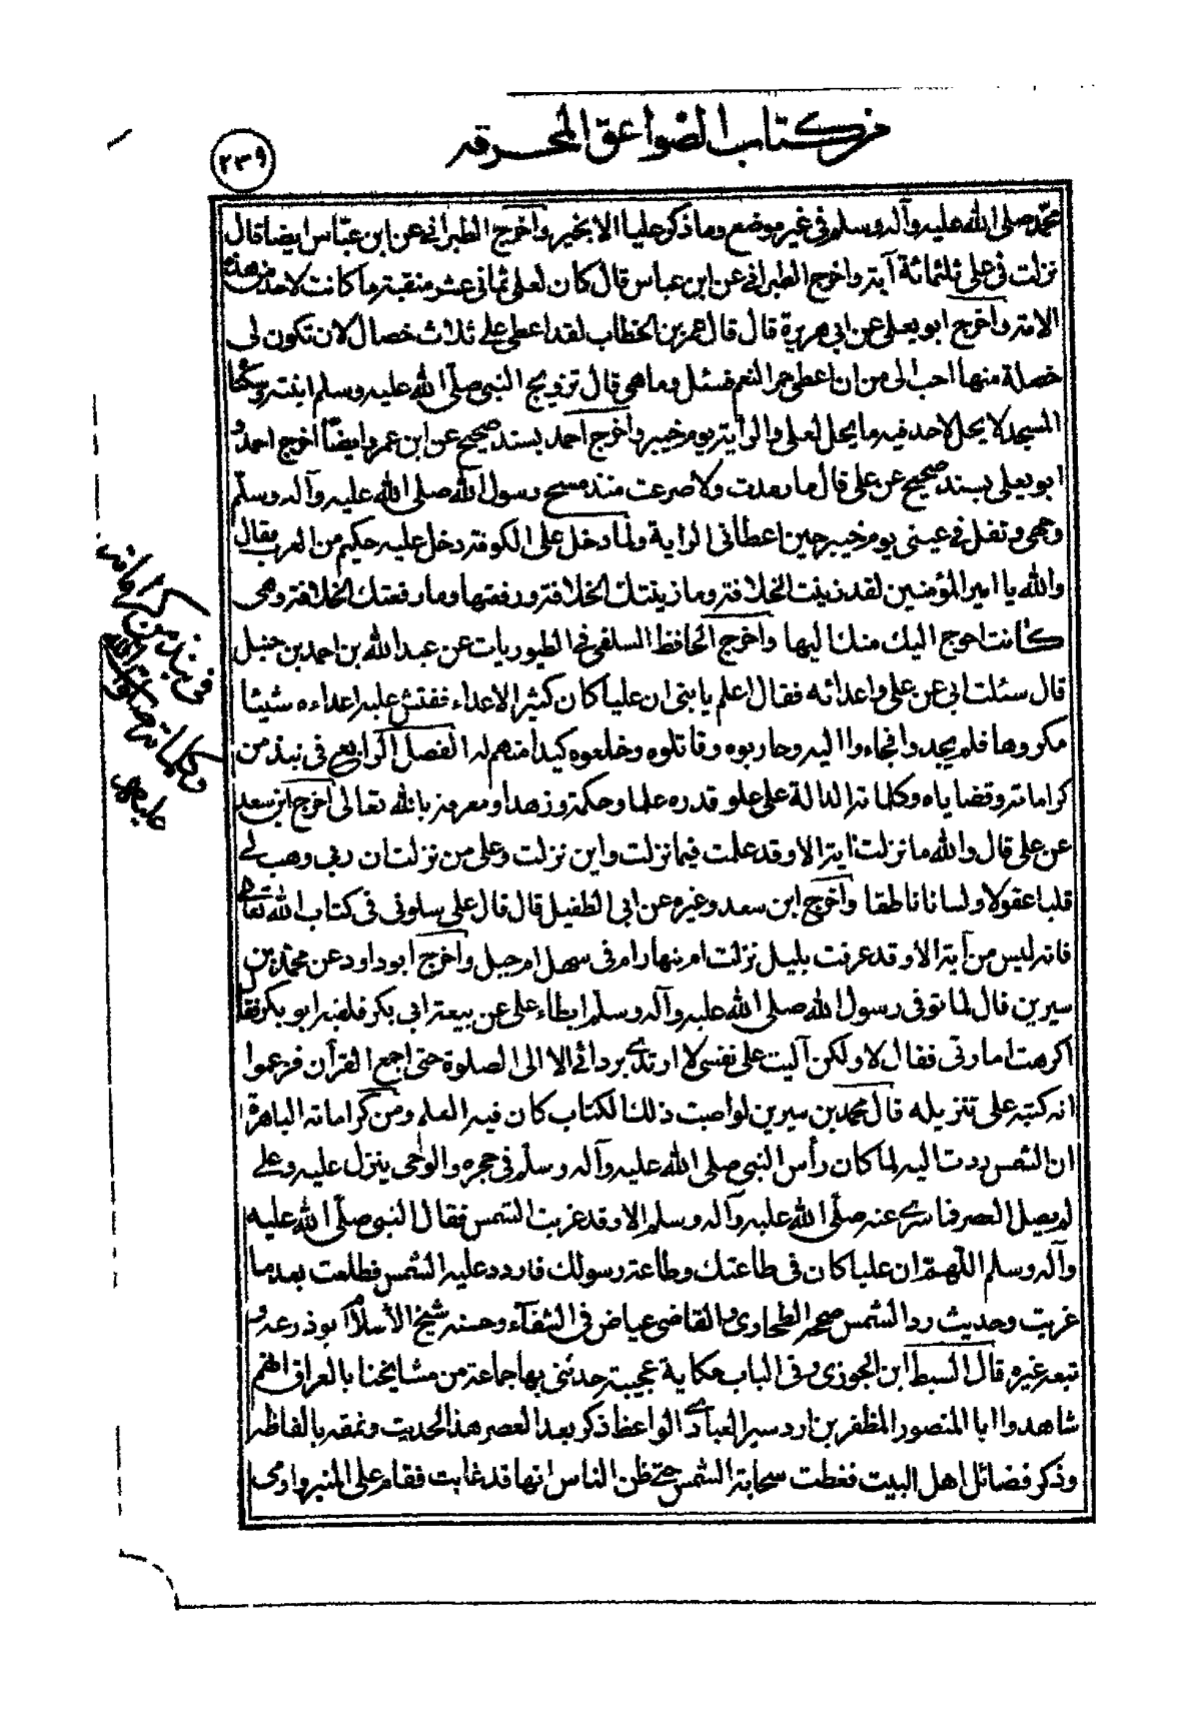 من كتاب الصواعق المحرقه
٢٣٩
محمد صلى الله عليه وآله وسلم في غير موضع وما ذكر عليا الا بخير واخرج الطبراني عن ابن عباس ايضا قال
نزلت في على ثلثمائة آية واخرج الطبراني عن ابن عباس قال كان لعلى ثمانى عشر منقبة ما كانت لاحد من هذه
الامة واخرج ابو يعلى عن ابى هريرة قال قال عمر بن الخطاب لقد اعطى على ثلاث خصال لان تكون لى
خصلة منها احب الى من ان اعطى حمر النعم فسئل وما هي قال تزويج النبى صلى الله عليه وسلم ابنته وسكنا
المسجد لا يحل لاحد فيه ما يحل لعلى والراية يوم خيبر واخرج احمد بسند صحيح عن ابن عمر وايضا اخرج احمد و
ابو يعلى بسند صحيح عن على قال ما رمدت ولا صرعت منذ مسح رسول الله صلى الله عليه وآله وسلم
وجهى وتفل في عينى يوم خيبر حين اعطانى الراية ولما دخل على الكوفة دخل عليه حكيم من العرب فقال
والله يا امير المؤمنين لقد زينت الخلافة وما زينتك الخلافة ورفعتها وما رفعتك الخلافة وهى
كانت احوج اليك منك اليها واخرج الحافظ السلفى في الطيوريات عن عبد الله بن احمد بن حنبل
قال سئلت ابى عن على واعدائه فقال اعلم يا بنى ان عليا كان كثير الاعداء ففتش عليه اعداءه شيئا
مكروها فلم يجدوا فجاءوا اليه وحاربوه وقاتلوه وخلعوه كيدا منهم له الفصل الرابع في نبذ من
كراماته وقضاياه وكلماته الدالة على علو قدره علما وحكمة وزهدا ومعرفة بالله تعالى اخرج ابن سعد
عن على قال والله ما نزلت اية الا وقد علمت فيما نزلت واين نزلت وعلى من نزلت ان ربى وهب لى
قلبا عقولا ولسانا ناطقا واخرج ابن سعد وغيره عن ابى الطفيل قال قال على سلونى فى كتاب الله تعالى
فانه ليس من آية الا وقد عرفت بليل نزلت ام بنهار ام فى سهل ام جبل واخرج ابو داود عن محمد بن
سيرين قال لما توفى رسول الله صلى الله عليه وآله وسلم ابطاء على عن بيعة ابى بكر فلقيه ابو بكر فقا
اكرهت امارتى فقال لا ولكن آليت على نفسى لا ارتدى بردائى الا الى الصلوة حتى اجمع القرآن فزعموا
انه كتبه على تنزيله قال محمد بن سيرين لو اصبت ذلك الكتاب كان فيه العلم ومن كراماته الباهرة
ان الشمس ردت اليه لما كان رأس النبى صلى الله عليه وآله وسلم فى حجره والوحى ينزل عليه وعلى
لم يصل العصر فما سرى عنه صلى الله عليه وآله وسلم الا وقد غربت الشمس فقال النبى صلى الله عليه
وآله وسلم اللهم ان عليا كان فى طاعتك وطاعة رسولك فاردد عليه الشمس فطلعت بعد ما
غربت وحديث رد الشمس صححه الطحاوى والقاضى عياض فى الشفآء وحسنه شيخ الأسلام ابو ذرعه و
تبعه غيره قال السبط ابن الجوزى وفى الباب حكاية عجيبة حدثنى بها جماعة من مشايخنا بالعراق انهم
شاهدوا ابا المنصور المظفر بن اردسير العبادى الواعظ ذكر بعد العصر هذا الحديث ونمقه بالفاظه
وذكر فضائل اهل البيت فغطت سحابة الشمس حتى ظن الناس انها قد غابت فقام على المنبر واومى
فى نبذ من كراماته
وكلماته صلوات الله
عليه